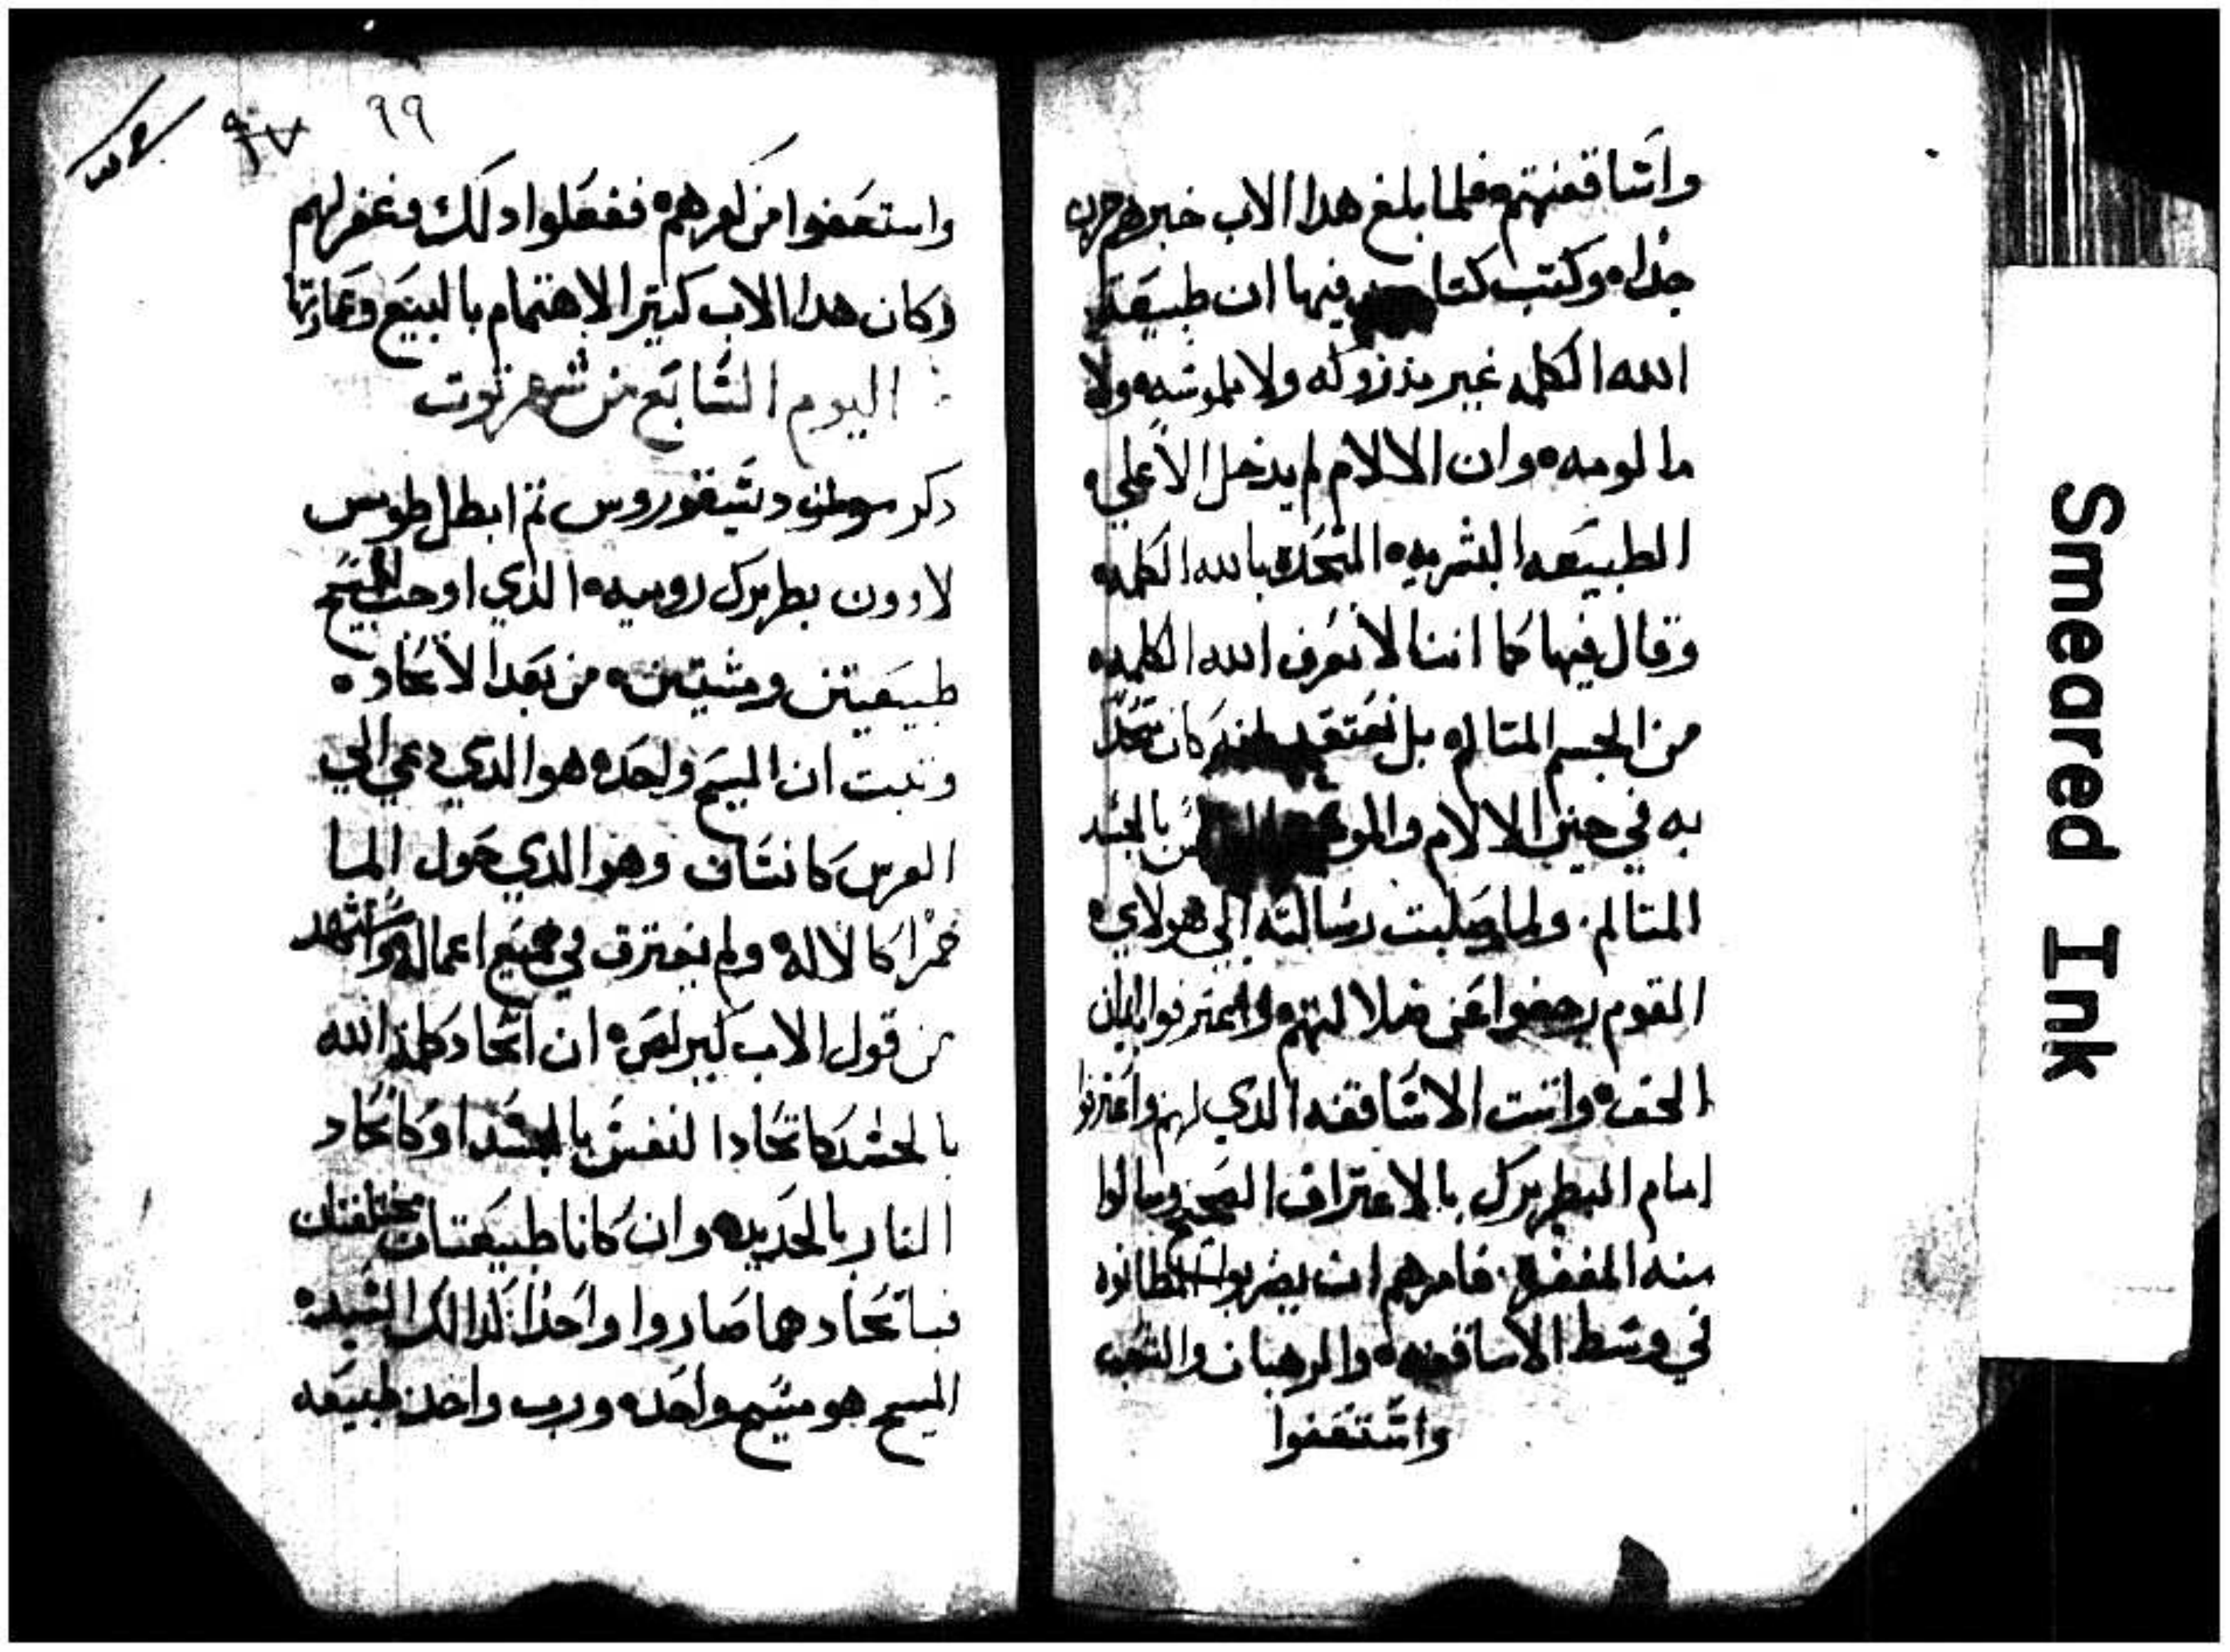 واساقفتهم فلما بلغ هدا الاب خبرهم حزن
جدا ه وكتب كتاب فيها ان طبيعة
الله الكلمه غير مدروكه ولا ملموسه ولا
مالومه ه وان الالام لم يدخل الا علي
الطبيعه البشريه ه المتحده بالله الكلمه ه
وقال فيها كما اننا لا نعرف الله الكلمه ه
من الجسم المتالم ه بل نعتقد كان متحد
به في حين الالام والموت بالجسد
المتالم . ولما وصلت رسالته الي هولاي ه
القوم رجعوا عن ضلالتهم واعترفوا بالايمان
الحق ه واتت الاساقفه الدي لهم واعترفوا
امام البطريرك بالاعتراف الصحيح وسالوا
منه المغفره . فامرهم ان يضربوا المطانوه
في وسط الاساقفه ه والرهبان والشعب
واستعفوا
٩٩
واستعفوا من كفرهم ه ففعلوا دلك وغفر لهم
وكان هدا الاب كتير الاهتمام بالبيع وعمارتها
اليوم السابع من شهر توت
دكر ديسقوروس
لاوون بطريرك روميه ه الذي اوجب للمسيح
طبيعتين ومشيتين ه من بعد الاتحاد ه
وتبت ان المسيح واحد ه هو الدي دعي الي
العرس كانسان وهو الدي حول الما
خمرا كالاله ه ولم يفترق في جميع اعماله واستشهد
من قول الاب كيرلص ه ان اتحاد كلمة الله
بالجسد كاتحادا لنفس بالجسد او كاتحاد
النار بالحديد ه وان كانا طبيعتان مختلفتان
فباتحادهما صاروا واحدا كدالك السيد ه
المسيح هو مسيح واحد ه ورب واحد طبيعه
Smeared Ink